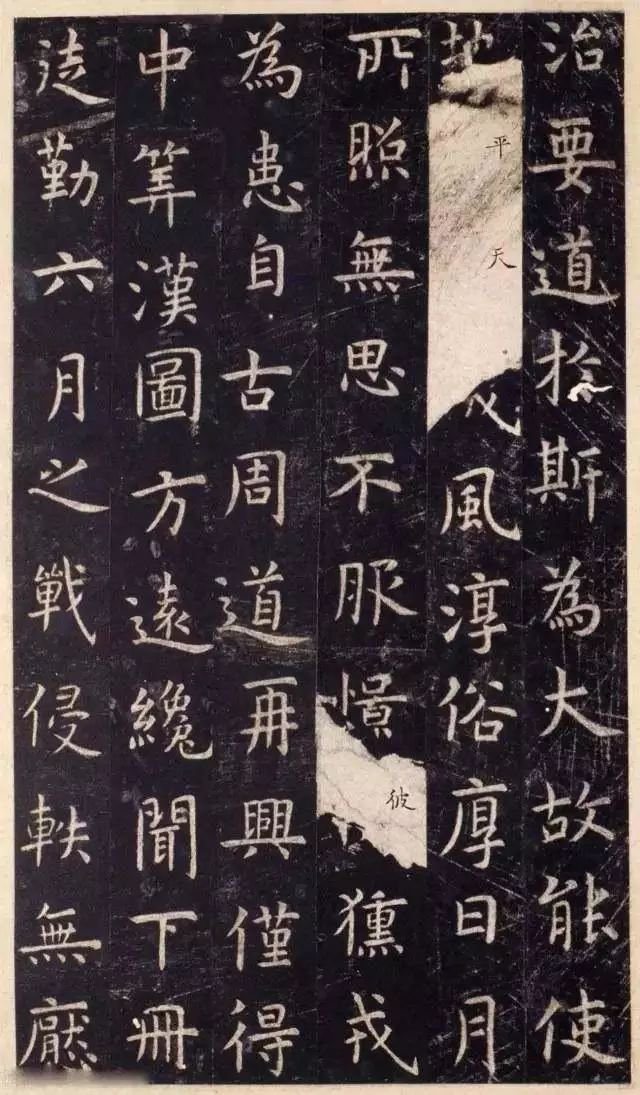 治要道於斯為大故能使
地平天成風淳俗厚日月
所照無思不服憬彼獯戎
為患自古周道再興僅得
中筭漢圖方遠纔聞下冊
徒勤六月之戰侵軼無厭